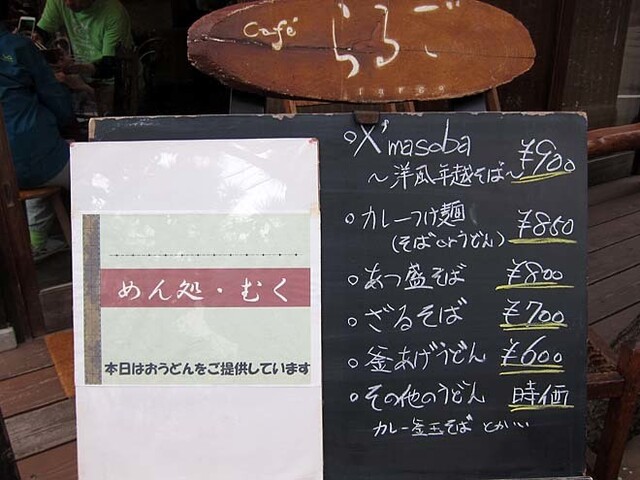 Café らるご
largo
めん処・むく
本日はおうどんをご提供しています
○X'masoba ¥900
〜洋風年越そば〜
○カレーつけ麺 ¥850
(そばorうどん)
○あつ盛そば ¥800
○ざるそば ¥700
○釜あげうどん ¥600
○その他のうどん 時価
カレー釜玉そば とかい